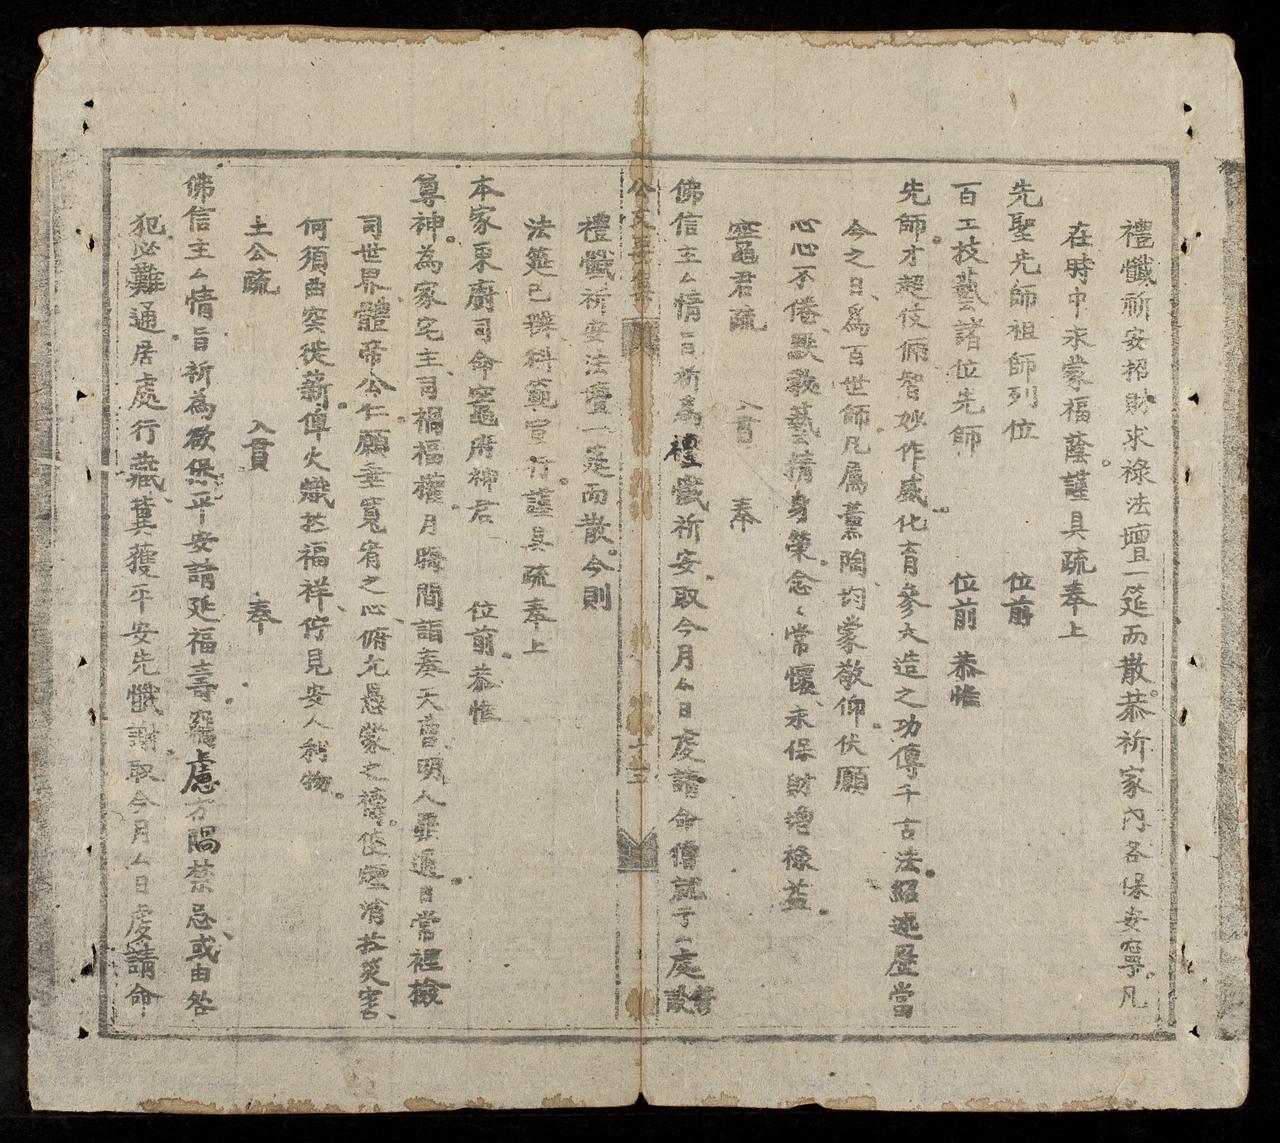 禮懺祈安招財求祿法壇一筵而散恭祈家内各保安寧凡
在時中永蒙福蔭謹具疏奉上
先聖先師祖師列位 位前
百工技藝諸位先師 位前 恭惟
先師才超伎倆智妙作威化育參大造之功傳千古法紹述歷當
今之日為百世師凡屬薰陶均蒙敬仰伏願
心心不倦默教藝精身榮念〻常懷永保財增祿益
竈君疏 入貫 奉
佛信主ム情旨祈為禮懺祈安取今月ム日虔請命僧就于ム處設
禮懺祈安法壇一筵而散今則
法筵已辦科範宣行謹具疏奉上
本家東廚司命竈府神君 位前恭惟
尊神為家宅主司禍福權月晦間詣奏天曹明人善過日當裡檢
司世界體帝公仁願垂寬宥之心俯允懇蒙之禱使 消於災害
何須曲突徙薪俾火熾於福祥佇見安人利物
土公疏 入貫 奉
佛信主ム情旨祈為欲保平安請延福壽竊慮方隅禁忌或由咎
犯必難通居處行藏冀獲平安先懺謝取今月ム日虔請命